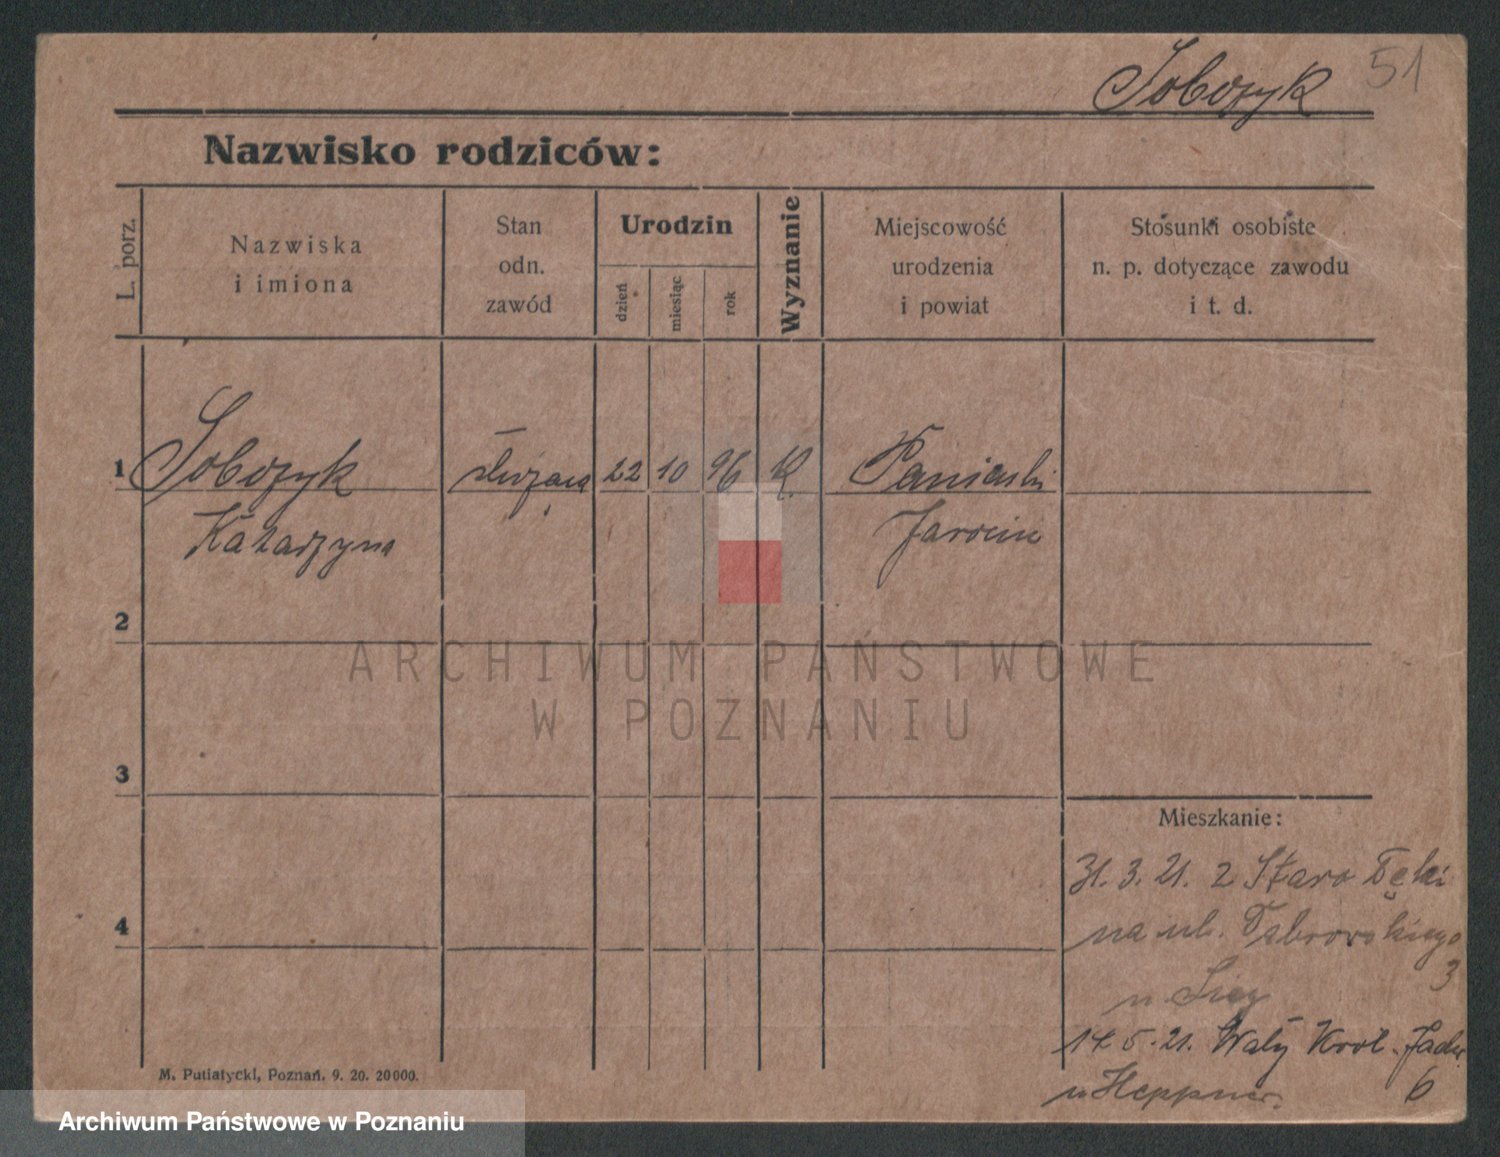 Sobczyk 51
Nazwisko rodziców:
L. porz.
Nazwiska
i imiona
Stan
odn.
zawód
Urodzin
dzień
miesiąc
rok
Wyznanie
Miejscowość
urodzenia
i powiat
Stosunki osobiste
n. p. dotyczące zawodu
i t. d.
1 Sobczyk służąca 22 10 96 K.
Katarzyna Jarocin
2
3
4
ARCHIWUM PAŃSTWOWE
W POZNANIU
Mieszkanie:
31. 3. 21. z Staro
na ul.
3
14. 5. 21. Wały Król.
u Heppner.
6
M. Putiatycki, Poznań. 9. 20. 20000.
Archiwum Państwowe w Poznaniu